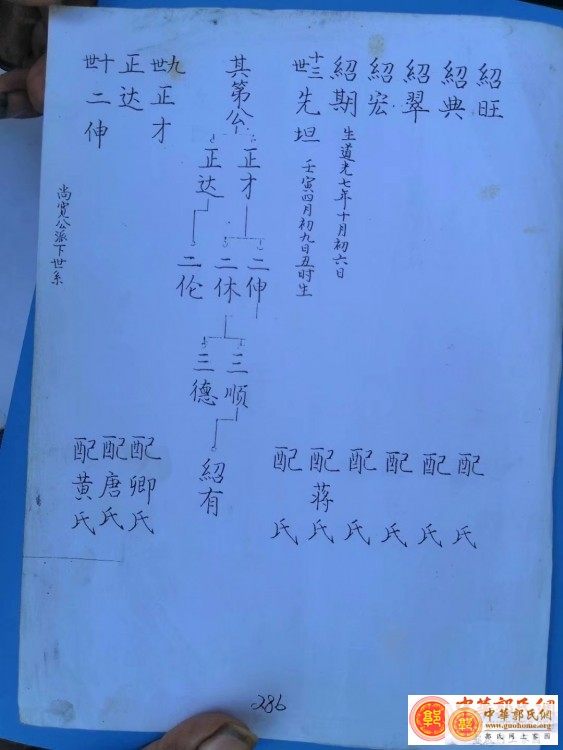 紹旺 配 氏
紹典 配 氏
紹翠 配 氏
紹宏 配 氏
紹期 生道光七年十月初六日 配蒋氏
十三世 先坦 壬寅四月初九日丑时生 配 氏
其第公
正才
正达
二伸
二休
二伦
三顺
三德
紹有
九世 正才 配卿氏
正达 配唐氏
十世 二伸 配黄氏
尚宽公派下世系
286
中華郭氏網
www.guohome.org
郭氏网上家园